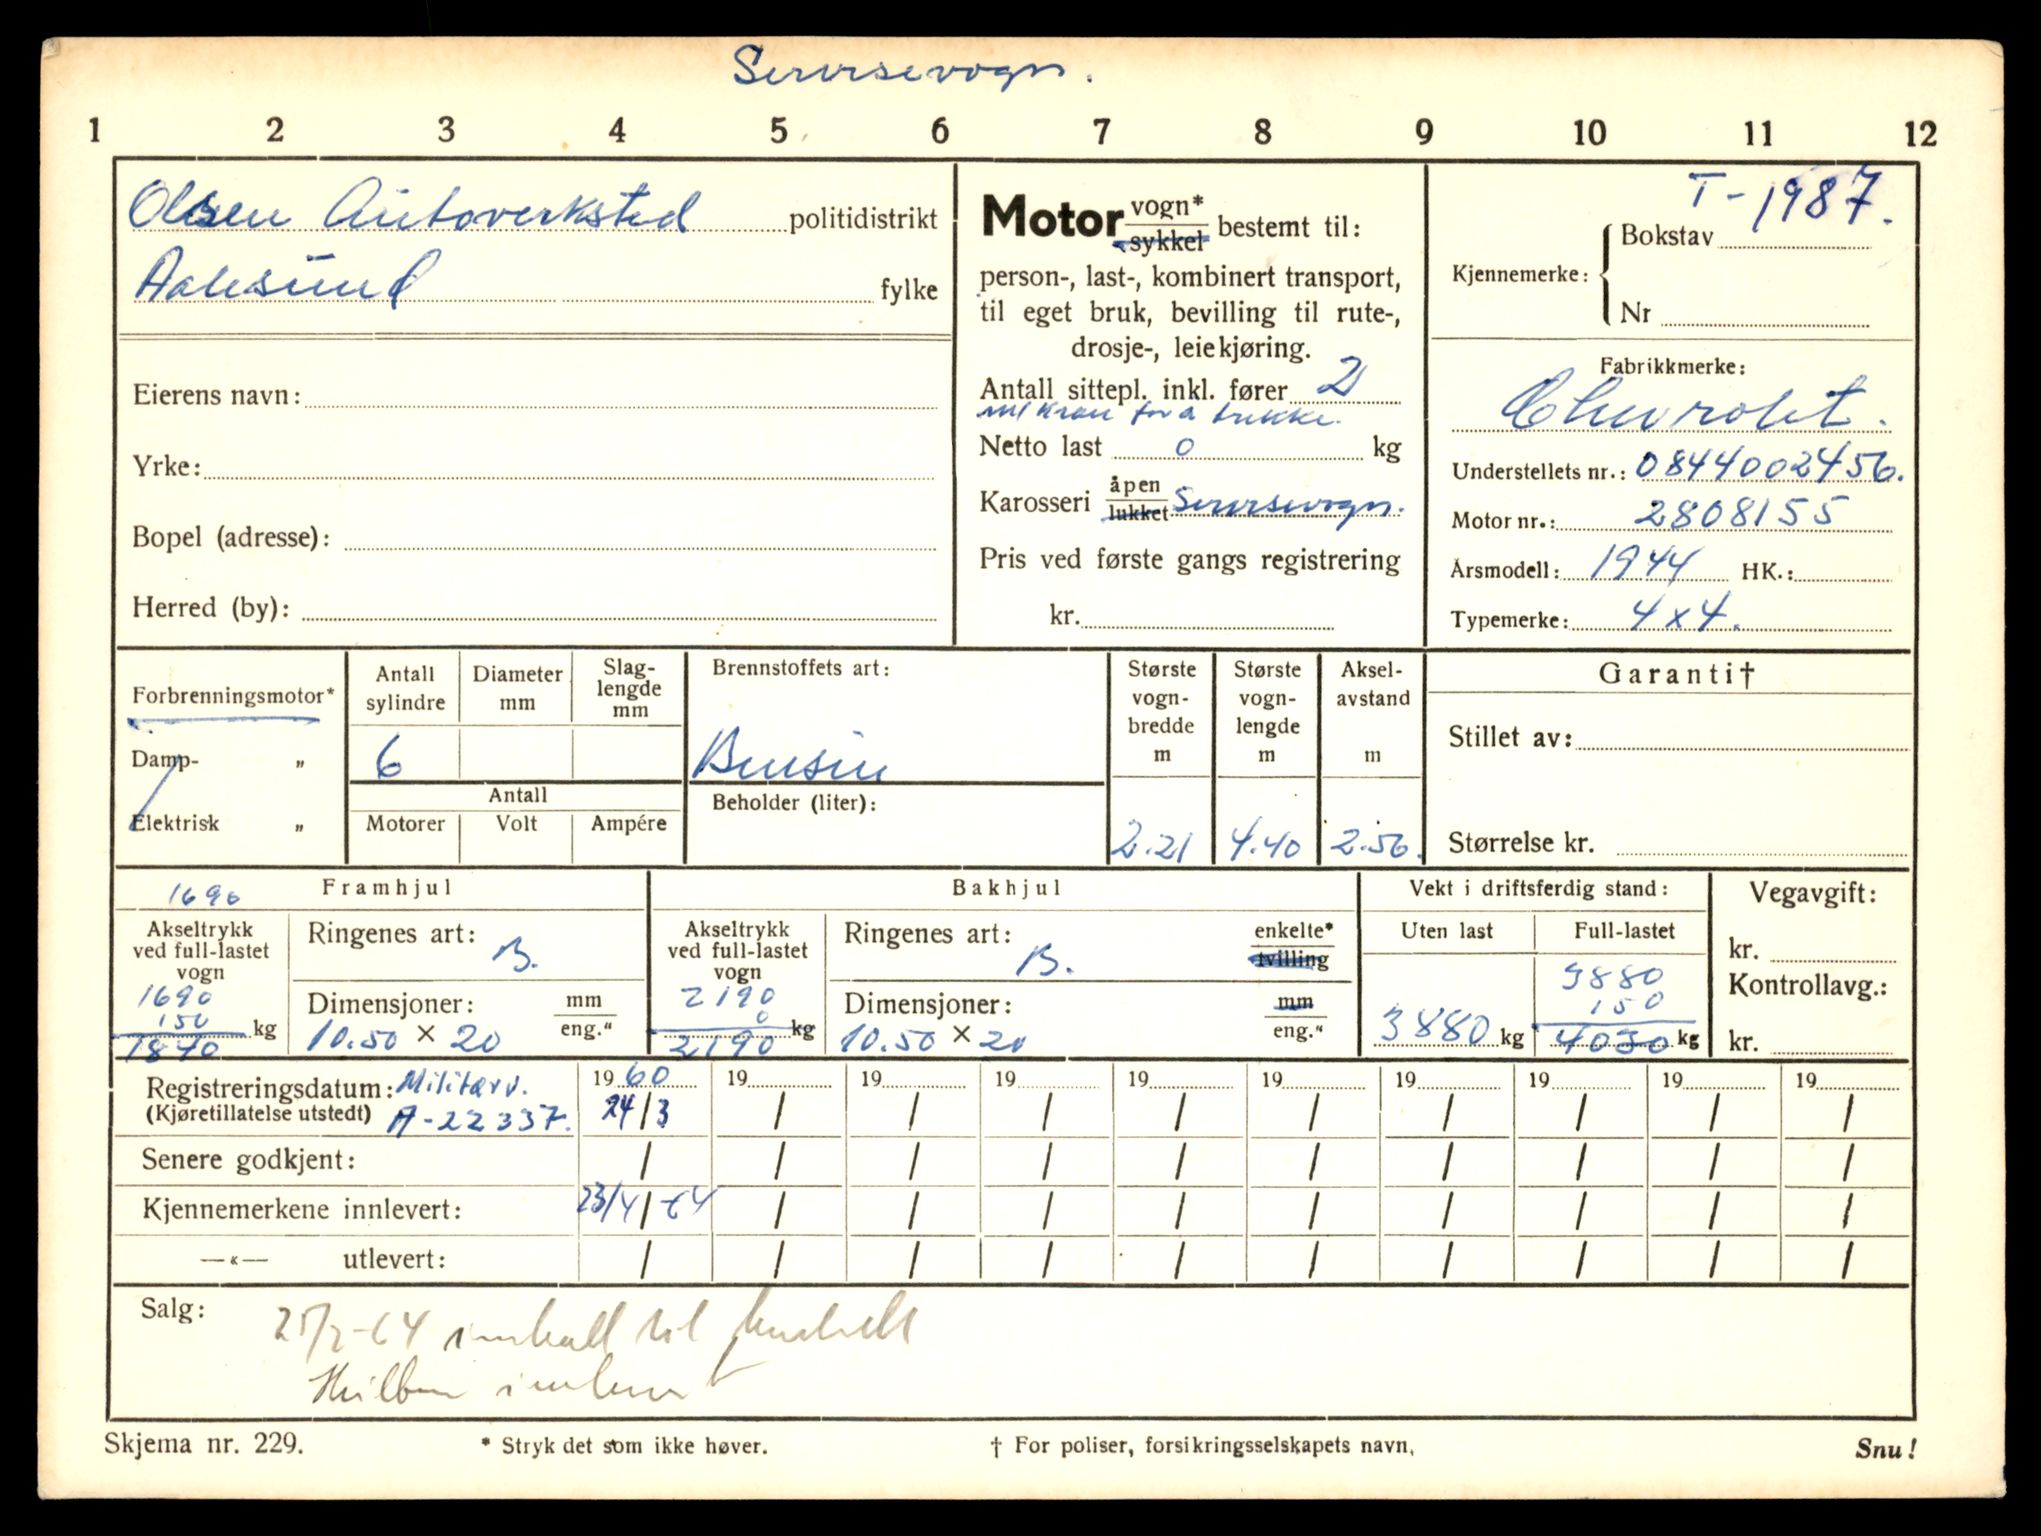 Servisevogn.
1 2 3 4 5 6 7 8 9 10 11 12
Olsen Autoverksted politidistrikt
Aalesund fylke
Eierens navn:
Yrke:
Bopel (adresse):
Herred (by):
Motor vogn* sykkel bestemt til:
person-, last-, kombinert transport,
til eget bruk, bevilling til rute-,
drosje-, leiekjøring.
Antall sittepl. inkl. fører 2
m/kran for a trekke.
Netto last 0 kg
Karosseri åpen lukket Servisevogn.
Pris ved første gangs registrering
kr.
T-1987.
Kjennemerke: Bokstav
Nr
Fabrikkmerke:
Chevrolet.
Understellets nr.: 0844002456.
Motor nr.: 2808155
Årsmodell: 1944 HK.:
Typemerke: 4x4.
Forbrenningsmotor*
Damp- "
Elektrisk "
Antall sylindre
Diameter mm
Slag-lengde mm
6
Antall
Motorer Volt Ampére
Brennstoffets art:
Bensin
Beholder (liter):
Største vogn-bredde m
2.21
Største vogn-lengde m
4.40
Aksel-avstand m
2.56.
Garanti†
Stillet av:
Størrelse kr.
1690 Framhjul
Akseltrykk
ved full-lastet
vogn
1690
150 kg
1840
Ringenes art: B.
Dimensjoner: mm
10.50 × 20 eng."
Bakhjul
Akseltrykk
ved full-lastet
vogn
2190
0 kg
2190
Ringenes art: B. enkelte* tvilling
Dimensjoner: mm
10.50 × 20 eng."
Vekt i driftsferdig stand:
Uten last
3880 kg
Full-lastet
3880
150
4030 kg
Vegavgift:
kr.
Kontrollavg.:
kr.
Registreringsdatum: Militærv. 1960 19 19 19 19 19 19 19 19 19
(Kjøretillatelse utstedt) A-22337. 24/3 / / / / / / / / /
Senere godkjent: / / / / / / / / / /
Kjennemerkene innlevert: 23/4/-64 / / / / / / / / /
—«— utlevert: / / / / / / / / / /
Salg: 25/2-64 innkalt til
innlevert
Skjema nr. 229. * Stryk det som ikke høver. † For poliser, forsikringsselskapets navn. Snu!